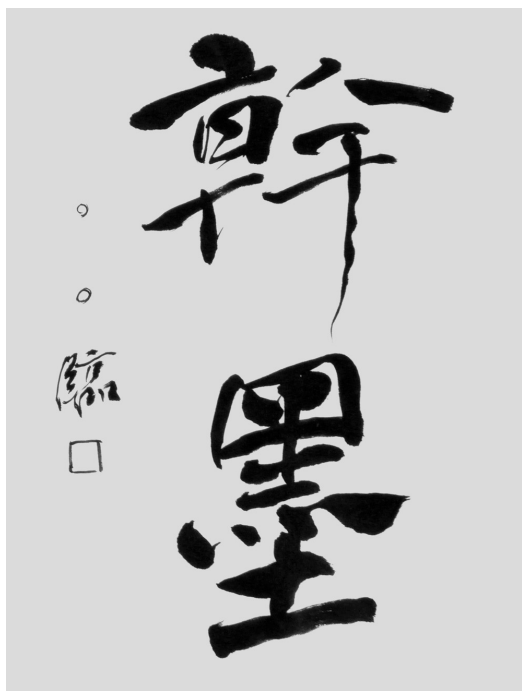 幹墨
○○臨